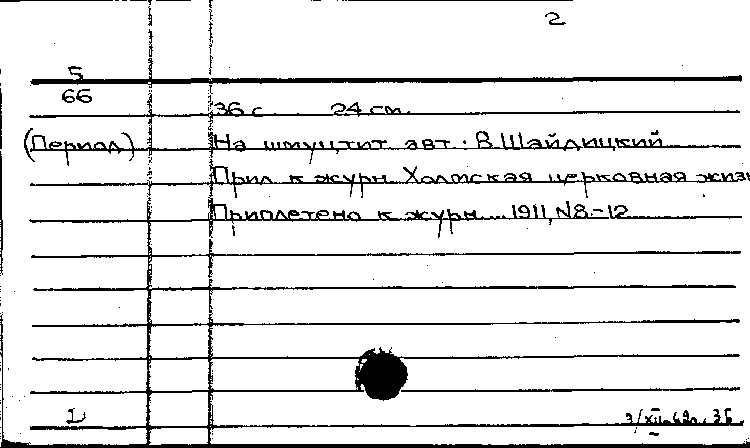 2
5
66
36 с 24 см.
(Период) На шмуцтит авт: В Шайдицкий
Прил к журн Холмская церковная жизн
Приплетено к журн 1911, N8-12